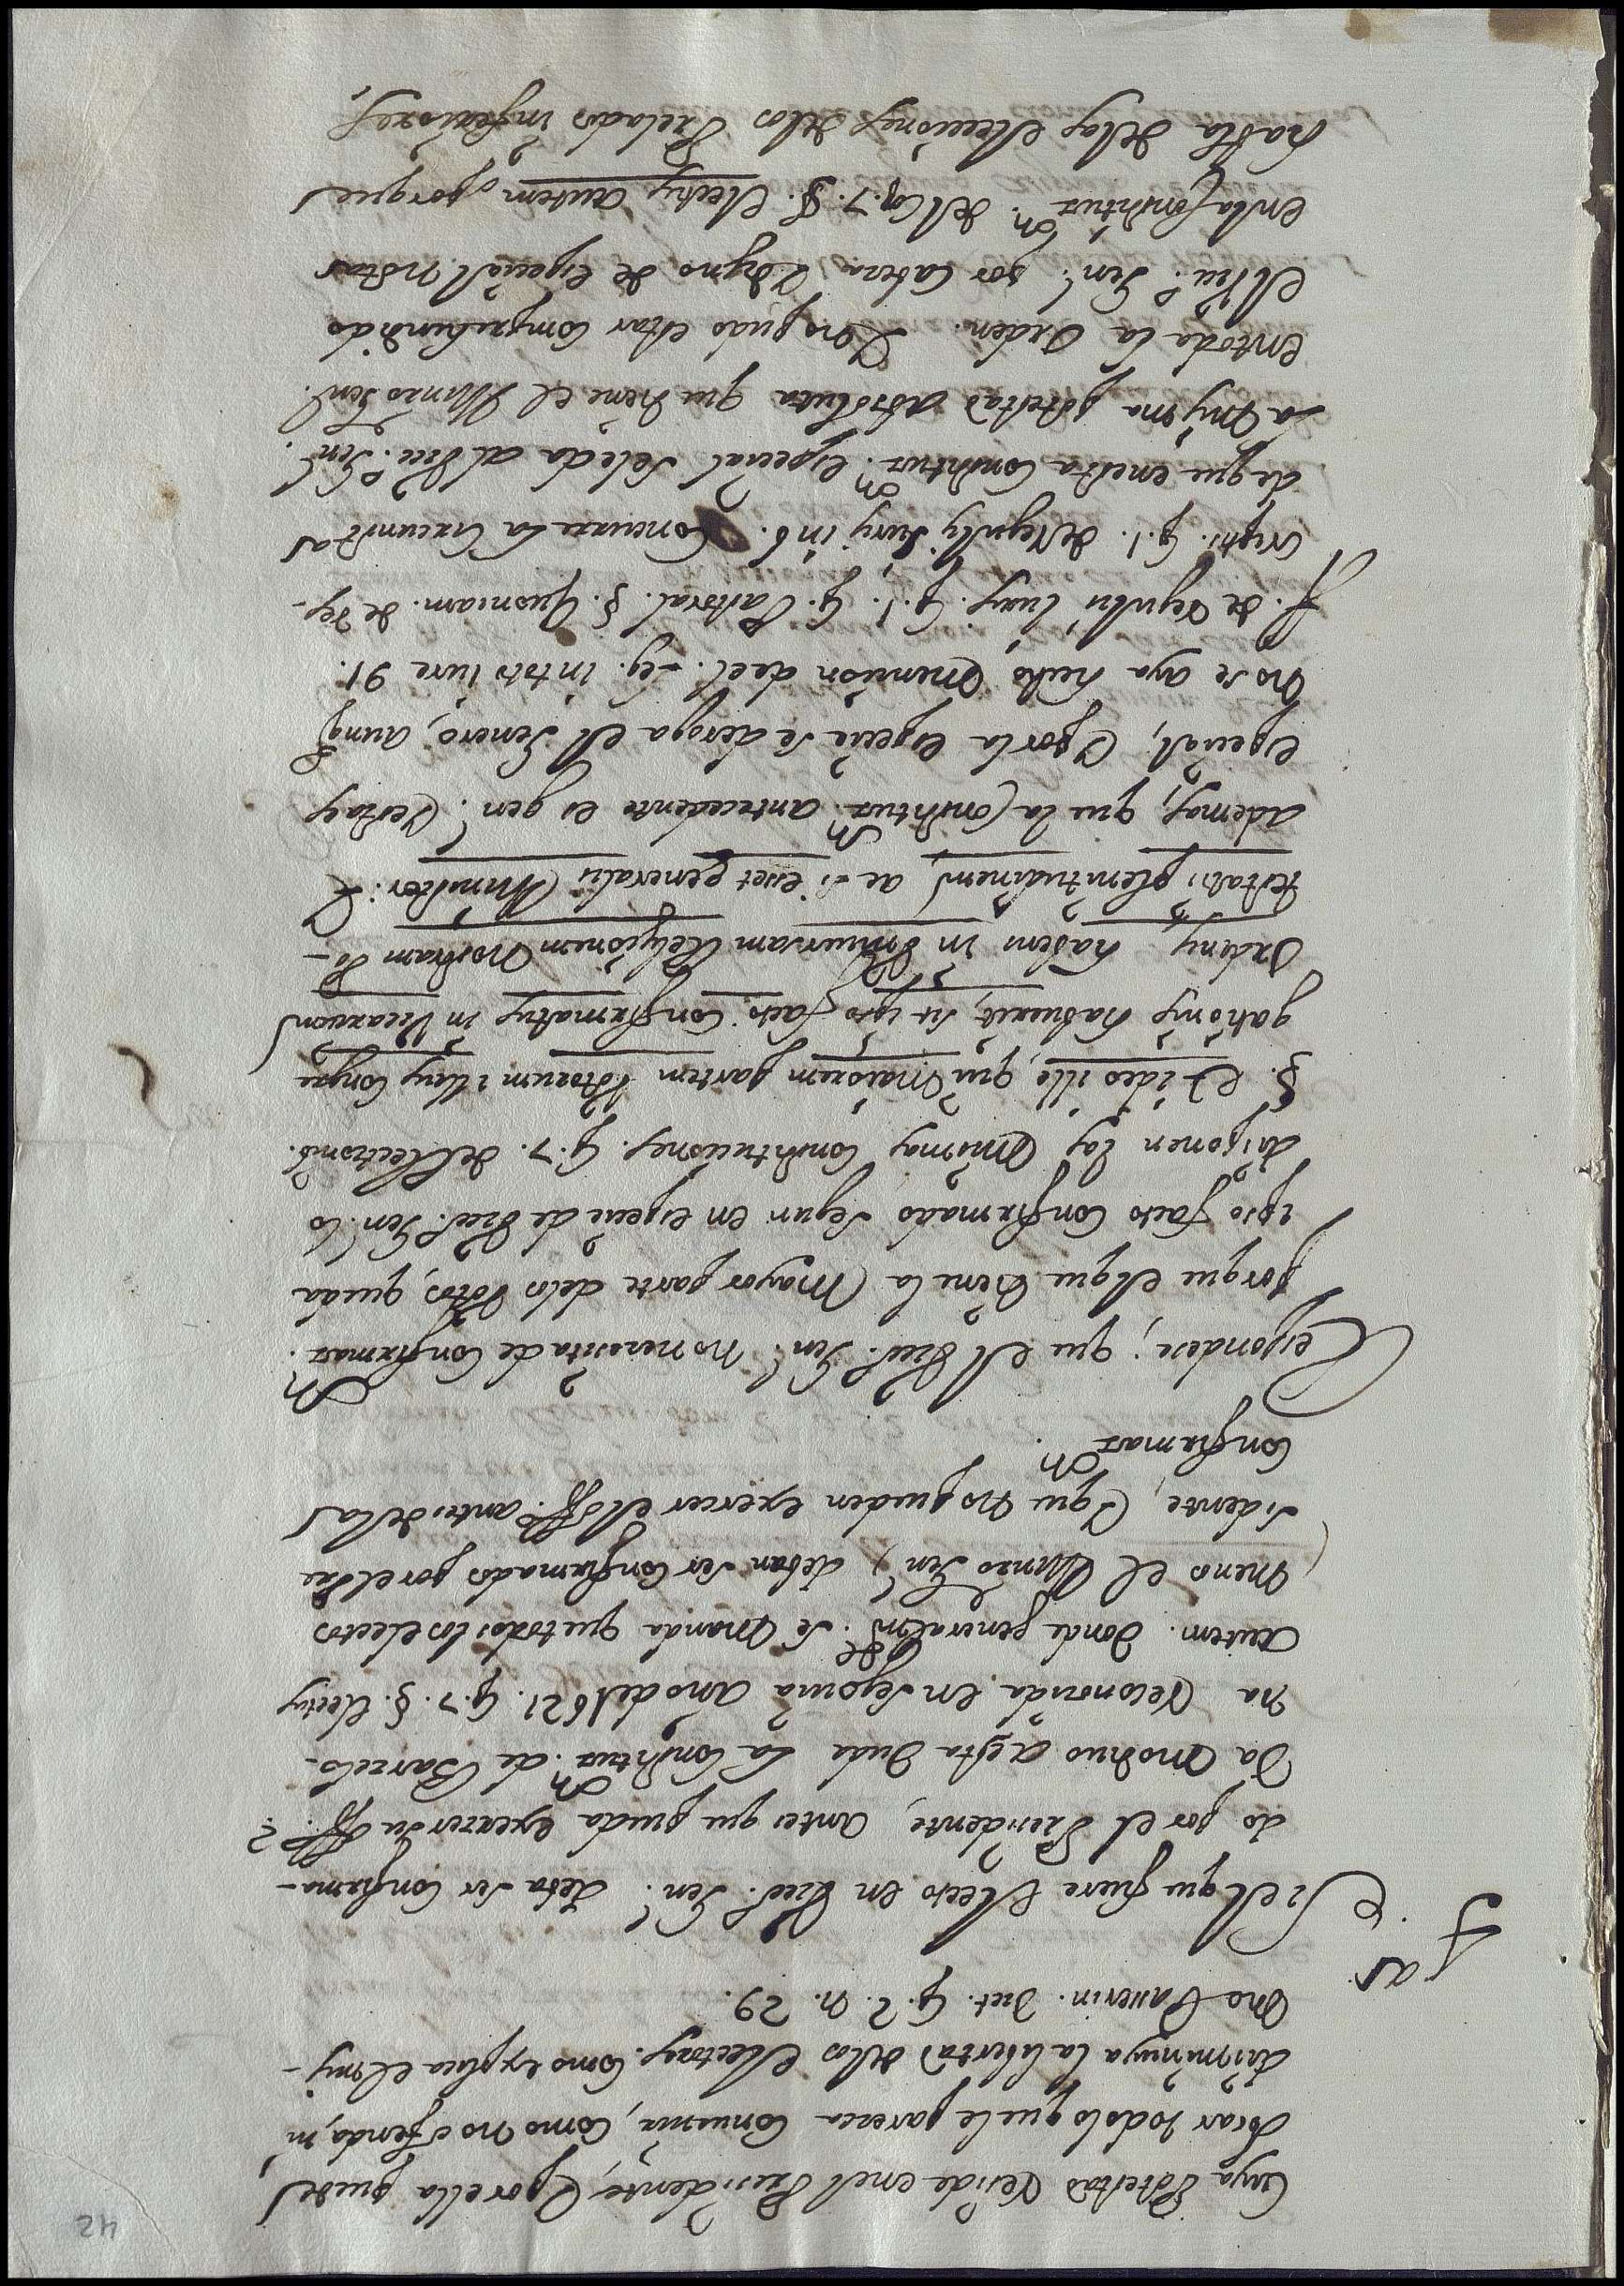 42
Cuya Potestad Reside en el Presidente, y por ella puede
obrar todo lo que le pareca Conuenir, Como no ofenda, ni
disminuya la libertad de los Electores. Como explica el mis-
mo Passerin. Dict. C. 2. N. 29.
Si el que fuere Electo en Vico. Gen.l deba ser Confirma-
do por el Presidente, antes que pueda exercer su offo.?
Da Motiuo a esta Duda La Constituon. de Barcelo-
na Reconocida en Segouia Año de 1621. C. 7. §. Electus
autem. donde generalmte. se Manda que todos los electos
(menos el Mnro Gen.l) deban ser Confirmados por el Pre
sidente, y que no pueden exercer el offo. antes de la
Confirmaon.
Responde se; que el Vico. Gen.l no necesita de Confirmaon.
porque el que tiene la Mayor parte de los Votos, queda
ipso facto Confirmado segun en especie de Vico. Gen.l lo
disponen las Mismas Constituciones. C. 7. de Electione.
§. Et ideo ille, qui Maiorem partem Votorum illius Congre
gationis habuerit, sit ipso facto Confirmatus in Vicarium
Ordinis habens in Vniuersam Religionem Nostram Po-
testatis plenitudinem, ac si esset generalis Minister: Y
ademas, que la Constituon. antecedente es gen.l y esta es
especial, y por la especie se deroga el Genero, aunq
no se aya hecho Mencion de el. Leg. in toto iure 91.
ff. de Regulis iuris. C. 1. C. Pastoral. §. Quoniam. de res-
criptis. C. 1. de Regulis Iuris in 6. Concurre la Circunstas
de que en esta Constituon. especial se le da al Vico. Gen.l
La Misma potestad absoluta que tiene el Mnro Gen.l
en toda la Orden. Y no pudo estar Comprehendido
el Vico. Gen.l por Cabeza, y digno de especial Nota
en la Constituon. del Cap. 7. §. Electus autem, porque
habla de las elecciones de los Prelados inferiores,